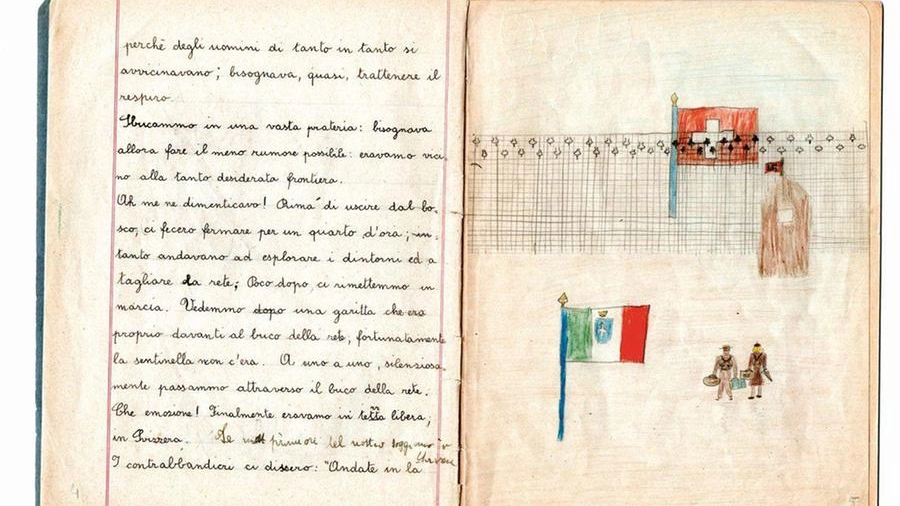 perchè degli uomini di tanto in tanto si
avvicinavano; bisognava, quasi, trattenere il
respiro.
Sbucammo in una vasta prateria: bisognava
allora fare il meno rumore possibile: eravamo vici-
no alla tanto desiderata frontiera.
Ah me ne dimenticavo! Prima di uscire dal bo-
sco, ci fecero fermare per un quarto d'ora; in-
tanto andavano ad esplorare i dintorni ed a
tagliare la rete; Poco dopo ci rimettemmo in
marcia. Vedemmo dopo una garitta che era
proprio davanti al buco della rete, fortunatamente
la sentinella non c'era. A uno a uno, silenziosa-
mente passammo attraverso il buco della rete.
Che emozione! Finalmente eravamo in terra libera,
in Svizzera. del nostro
I contrabbandieri ci dissero: "Andate in la